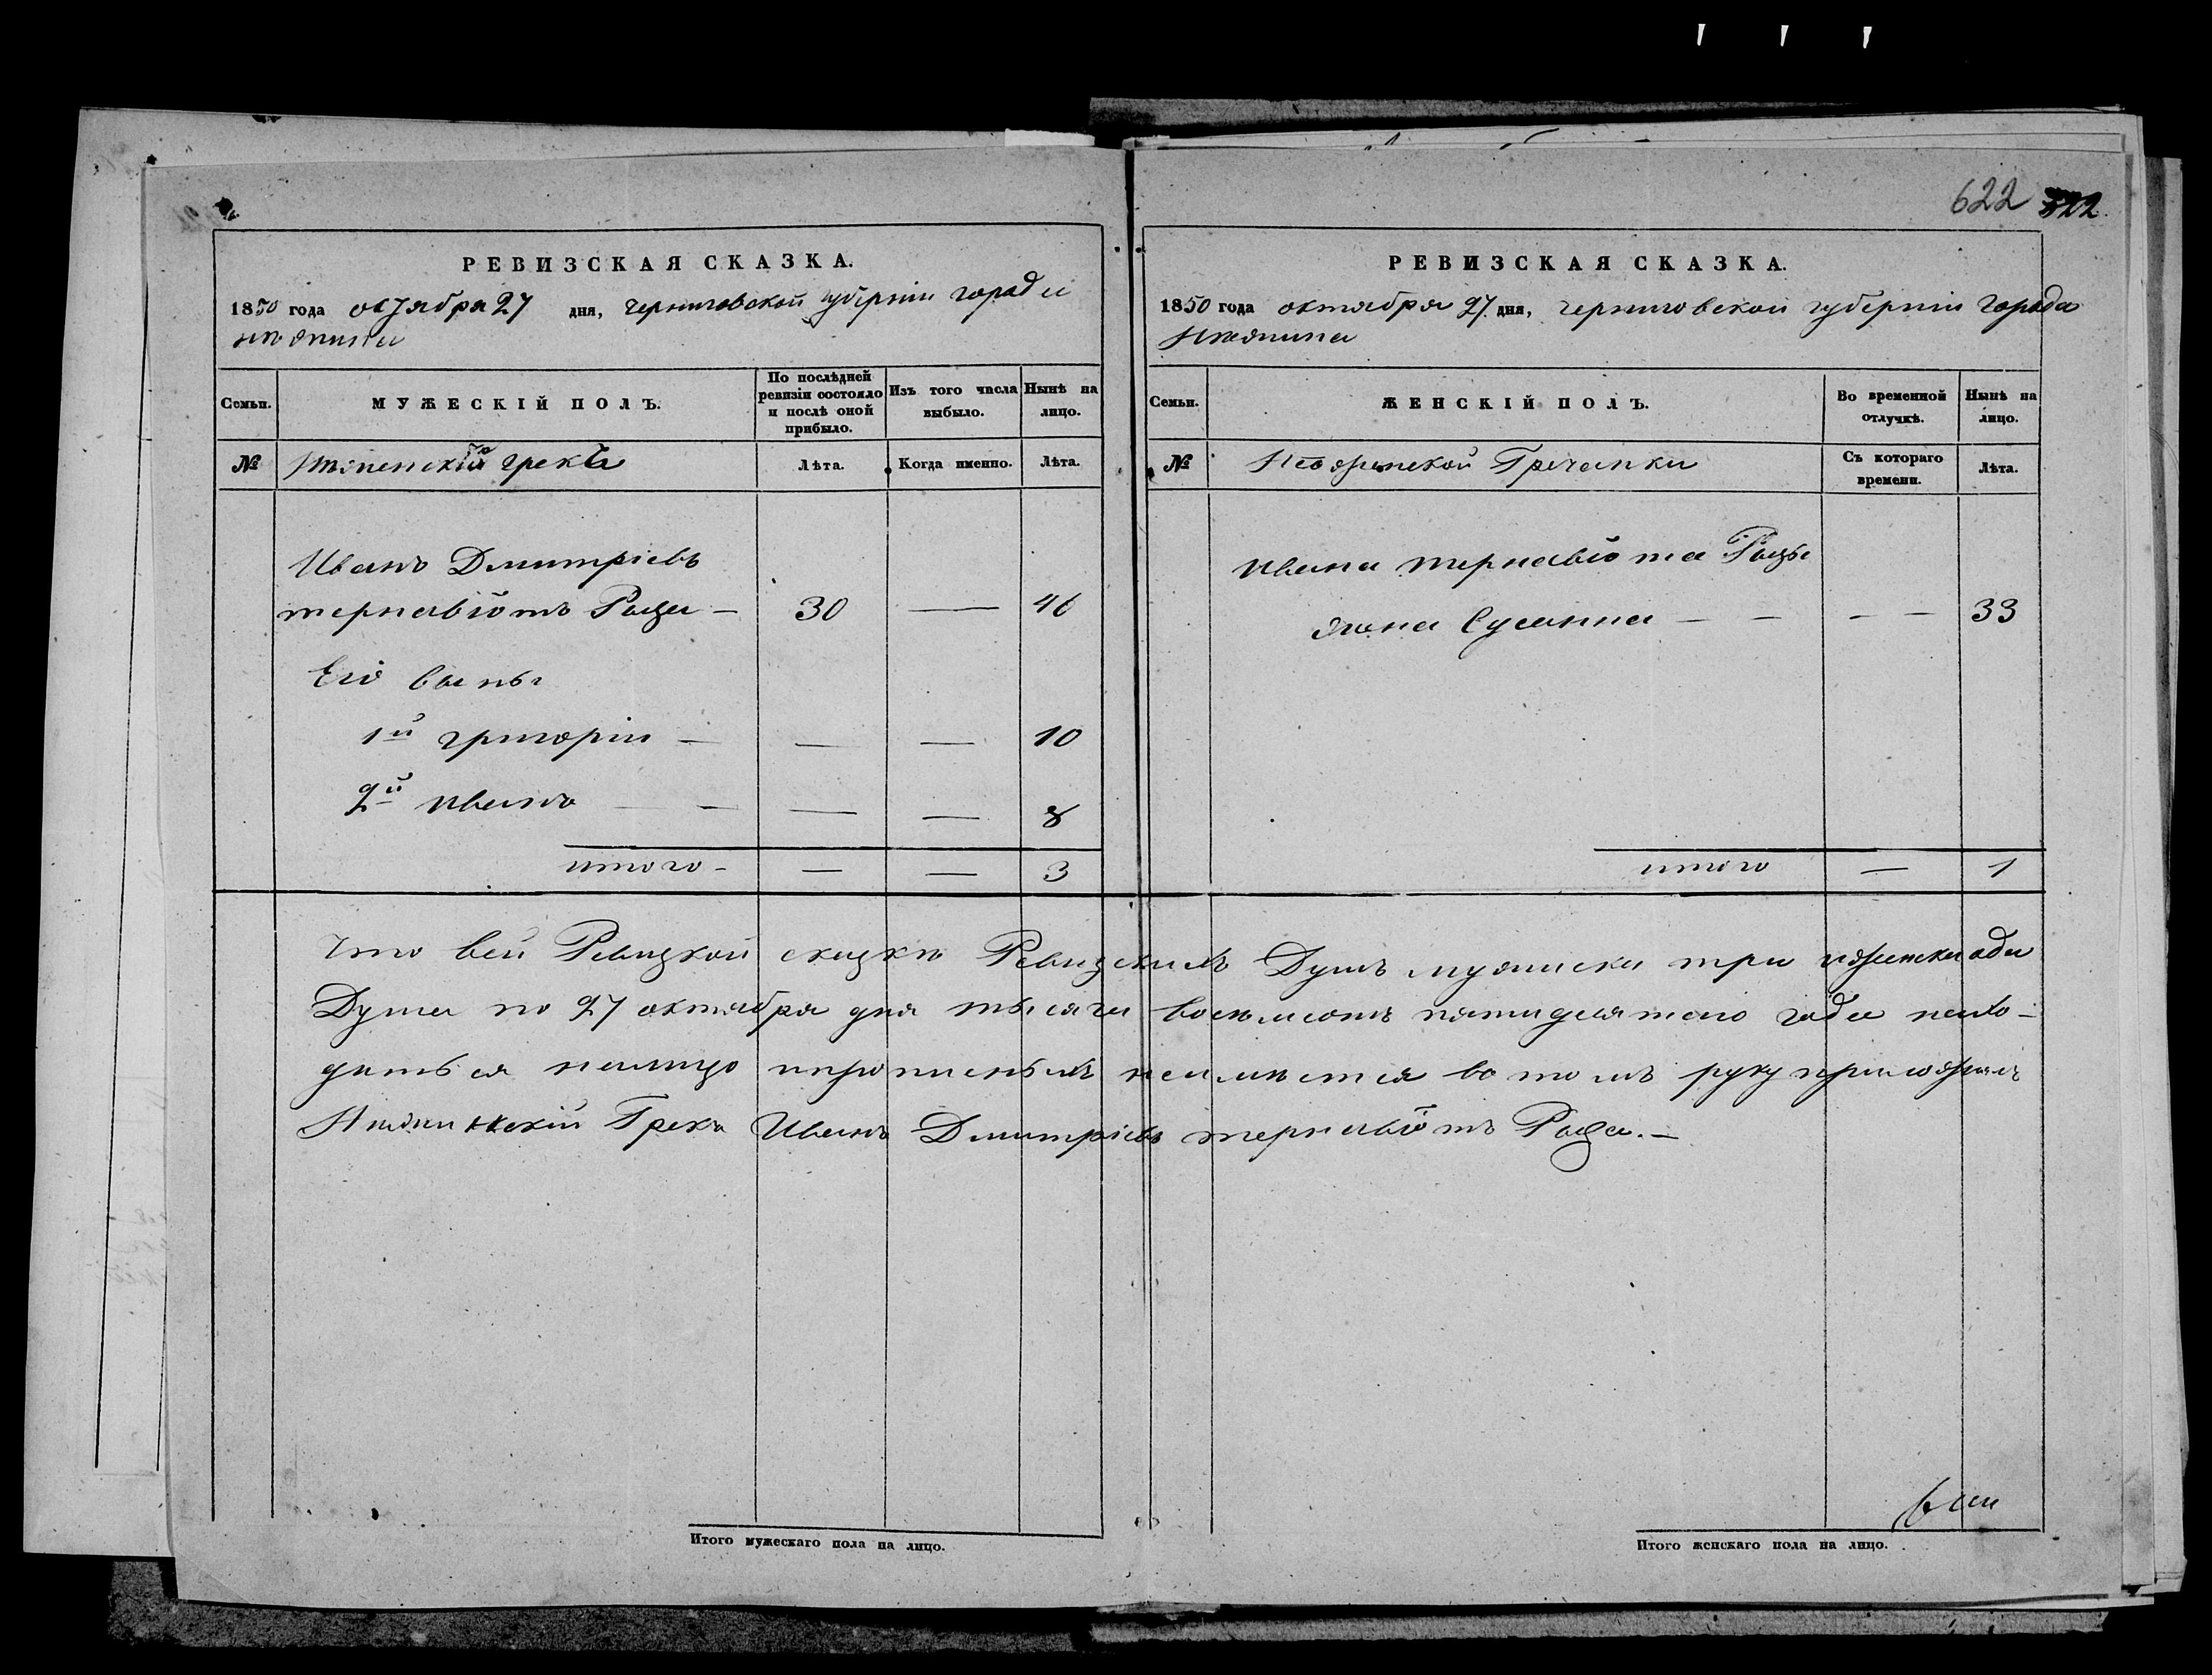 622 322.
РЕВИЗСКАЯ СКАЗКА.
1850 года октября 27 дня, черниговской губерніи города
нѣжина
Семьи.
МУЖЕСКІЙ ПОЛЪ.
По послѣдней ревизіи состояло и послѣ оной прибыло.
Изъ того числа выбыло.
Нынѣ на лицо.
№ грека
Лѣта.
Когда именно.
Лѣта.
Иванъ Дмитріевъ
тернавіотъ Раца — 30 — 46
Его сыны
1й григоріи — — — 10
2й иванъ — — — — 8
итого — — — 3
РЕВИЗСКАЯ СКАЗКА.
1850 года октября 27 дня, черниговской губерніи города
Нѣжина
Семьи.
ЖЕНСКІЙ ПОЛЪ.
Во временной отлучкѣ.
Нынѣ на лицо.
№ Гречанки
Съ котораго времени.
Лѣта.
ивана тернавіота Рацы
жена Сусанна — — — — 33
итого — 1
что всей Ревизкой сказки Ревизскихъ Душъ мужиска три иженска одн
Душа по 27 октября дня тысяча восемсотъ пятидесятого года нахо-
дитьса налицо ипрописныхъ неимѣется во томъ руку приложилъ
Нѣжинскій Грекъ Иванъ Дмитріевъ тернавіотъ Раца. —
Итого мужескаго пола на лицо.
Итого женскаго пола на лицо.